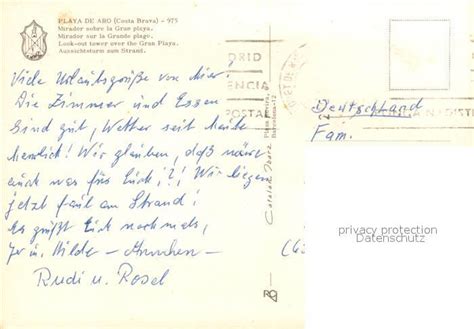 PLAYA DE ARO (Costa Brava) - 975
Mirador sobre la Gran playa.
Mirador sur la Grande plage.
Look-out tower over the Gran Playa.
Aussichtsturm zum Strand.
Viele Urlaubsgrüße von hier!
Die Zimmer und Essen
sind gut, Wetter seit heute
herrlich! Wir glauben, daß wäre
auch was für Euch!! Wir liegen
jetzt faul am Strand!
Es grüßt Euch nochmals,
Hilde
Rudi u. Rosel
DRID
ENCIA
POSTAL
Deutschland
Fam.
privacy protection
Datenschutz